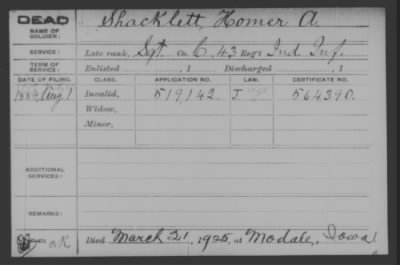 DEAD Shacklett, Homer A.
NAME OF SOLDIER:
SERVICE: Late rank, Sgt. Co. C, 43 Reg't Ind. Inf.
TERM OF SERVICE: Enlisted , 1 Discharged , 1
DATE OF FILING. CLASS. APPLICATION NO. LAW. CERTIFICATE NO.
1884, Aug 1 Invalid, 519,142. J 564390.
Widow,
Minor,
ADDITIONAL SERVICES:
REMARKS:
OK Died March 21, 1925, at Modale, Iowa